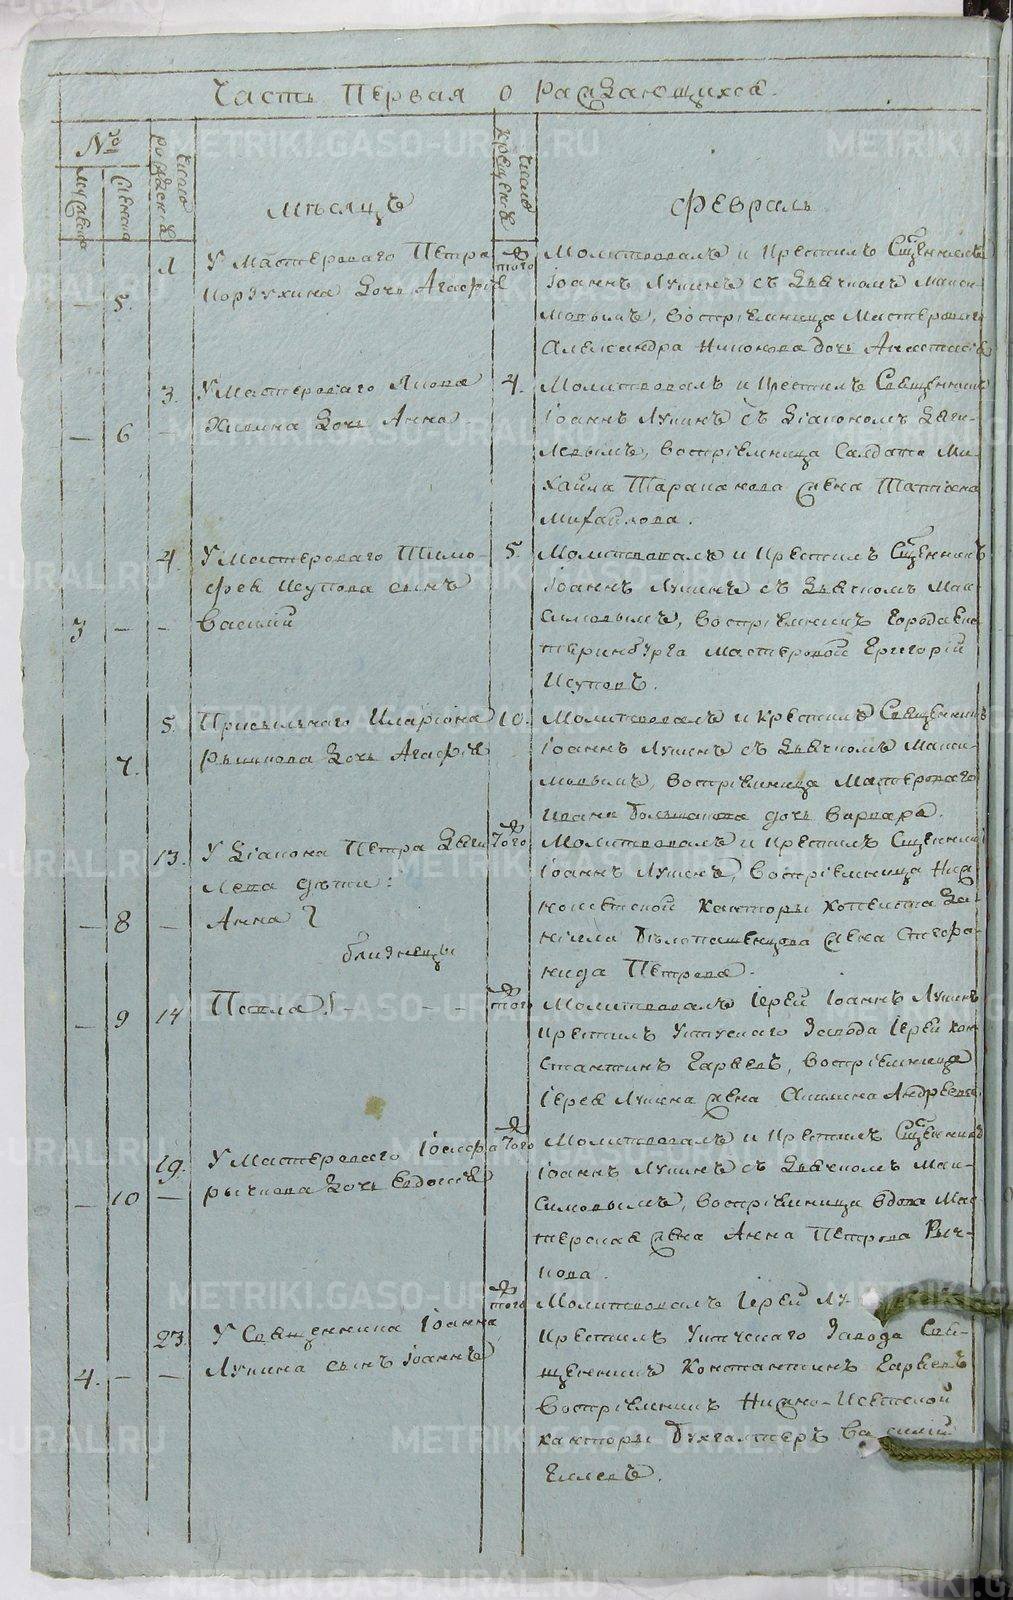 Часть Первая о раждающихся.
№
мужеска
женска
число рождения
Мѣсяцъ
число крещения
Февраль
5. 1 У Мастероваго Петра
Корзухина дочь Агафія
того
Молитвовалъ и крестилъ Священникъ
Іоаннъ Лукинъ съ дьячкомъ Макси-
мовымъ, воспріемница Мастероваго
Александра дочь Анастасія
6 3. У Мастероваго Якова
дочь Анна
4.
Молитвовалъ и крестилъ Священникъ
Іоаннъ Лукинъ съ діакономъ Дяги-
левымъ, воспріемница Салдата Ми-
хайла Тараканова жена Татіана
Михайлова.
3 4. У Мастероваго Тимо-
фея Исупова сынъ
Василій
5.
Молитвовалъ и крестилъ Священникъ
Іоаннъ Лукинъ съ дьячкомъ Мак-
симовымъ, воспріемникъ города Ека
теринбурга Мастеровой Григорій
Исуповъ.
7. 5. Присыльнаго Иларіона
дочь Агафія
10.
Молитвовалъ и крестилъ Священникъ
Іоаннъ Лукинъ съ дьячкомъ Макси-
мовымъ, воспріемница Мастероваго
Ивана Большакова дочь Варвара.
13. У діакона Петра Дяги
лева дѣти:
8 Анна
близнецы
Того
Молитвовалъ и крестилъ Священникъ
Іоаннъ Лукинъ, воспріемница Ниж
неисетской канторы кописта Да-
ніила Бѣлопашенцова жена Стефа-
нида Петрова.
9 14
того
Молитвовалъ Іерей Іоаннъ Лукинъ
крестилъ Уктускаго Завода Іерей Кон
стантинъ воспріемница
Іерея Лукина жена Андреева
10 19. У Мастероваго Іосифа
Рычкова дочь Евдокія
Того
Молитвовалъ и крестилъ Священникъ
Іоаннъ Лукинъ съ дьячкомъ Мак-
симовымъ, воспріемница вдова Мас
терская жена Анна Петрова Рыч-
кова.
4. 23. У Священника Іоанна
Лукина сынъ Іоаннъ
того
Молитвовалъ Іерей Лу
крестилъ Завода Свя-
щенникъ Константинъ
Воспріемникъ Нижно-Исетской
канторы Бухгалтеръ Василій